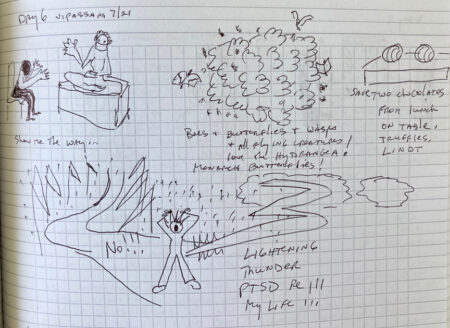 DAY 6 VIPASSANA 7/21
Show me the way...
BEES + BUTTERFLIES + WASPS
+ All flying CREATURES!
love the HYDRANGEA!
MONARCH BUTTERFLIES!
SAVE TWO CHOCOLATES
FROM LUNCH
ON TABLE,
TRUFFLES,
LINDT
No!!!
LIGHTENING
THUNDER
PTSD Re !!!
My LIFE !!!